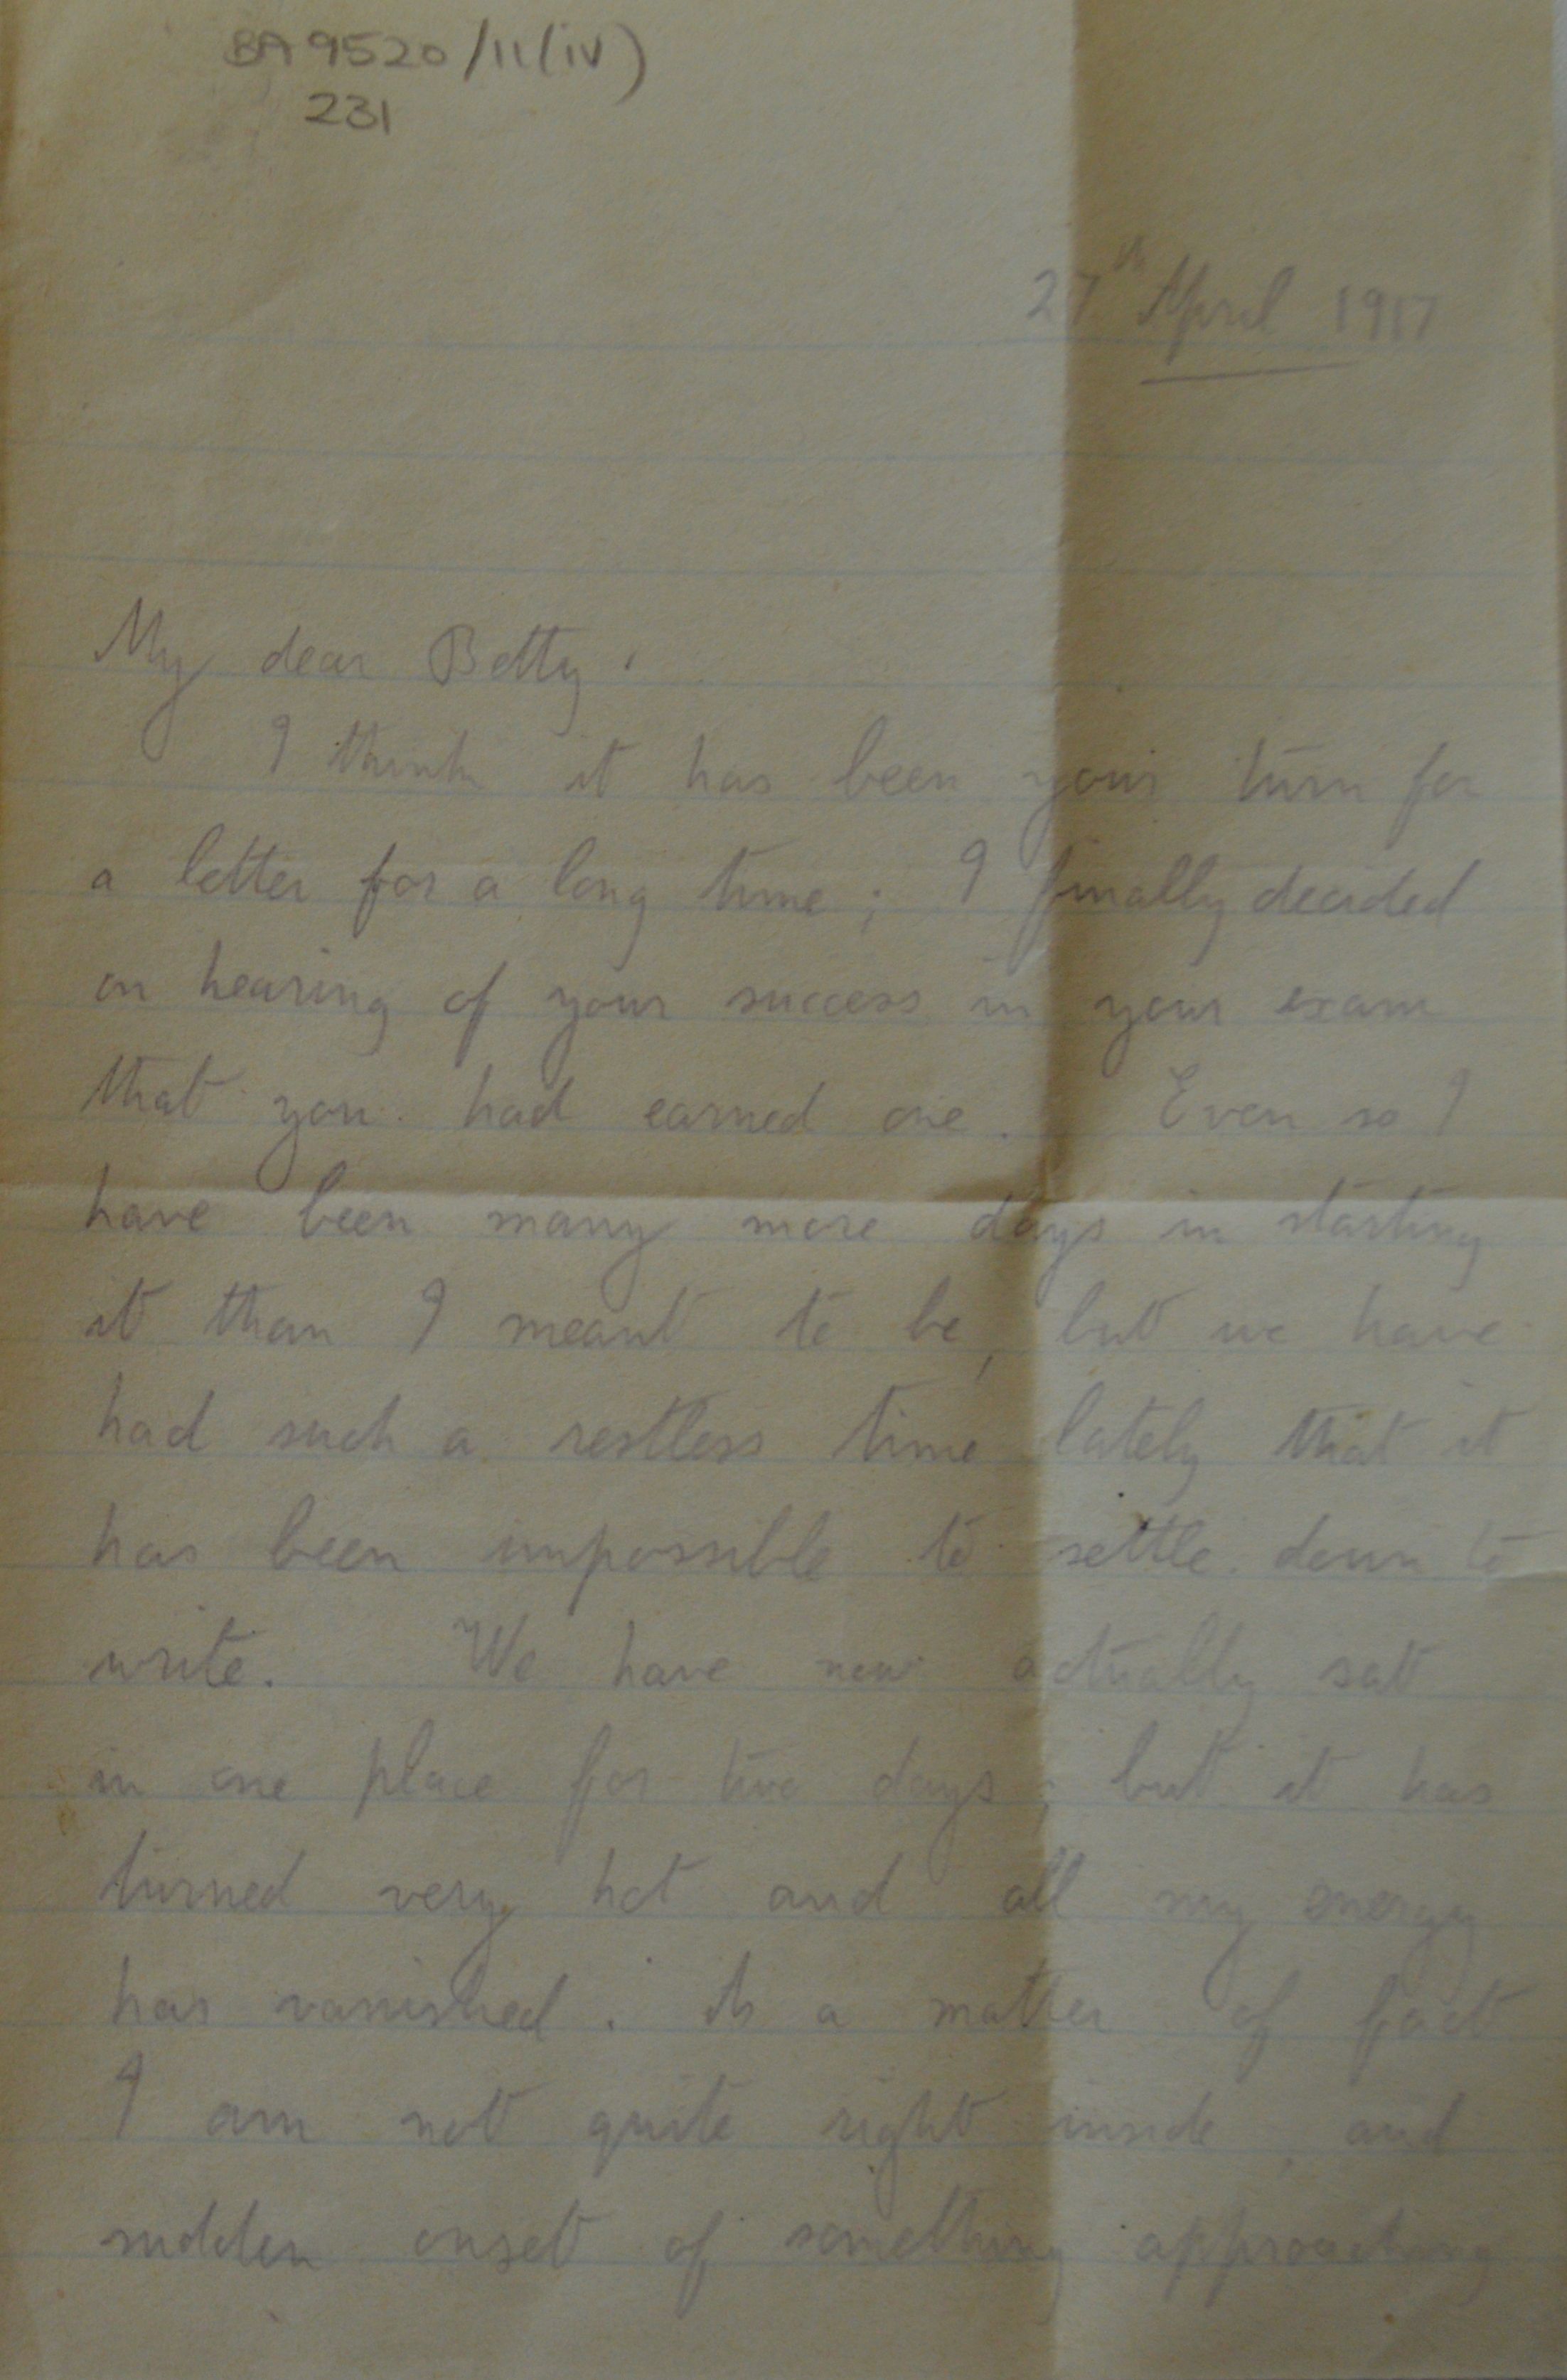 BA 9520/11(iv)
231
27th April 1917
My dear Betty,
I think it has been your turn for
a letter for a long time; I finally decided
on hearing of your success in your exam
that you had earned one. Even so I
have been many more days in starting
it than I meant to be, but we have
had such a restless time lately that it
has been impossible to settle down to
write. We have now actually sat
in one place for two days; but it has
turned very hot and all my energy
has vanished. As a matter of fact
I am not quite right inside, and
sudden onset of something approaching